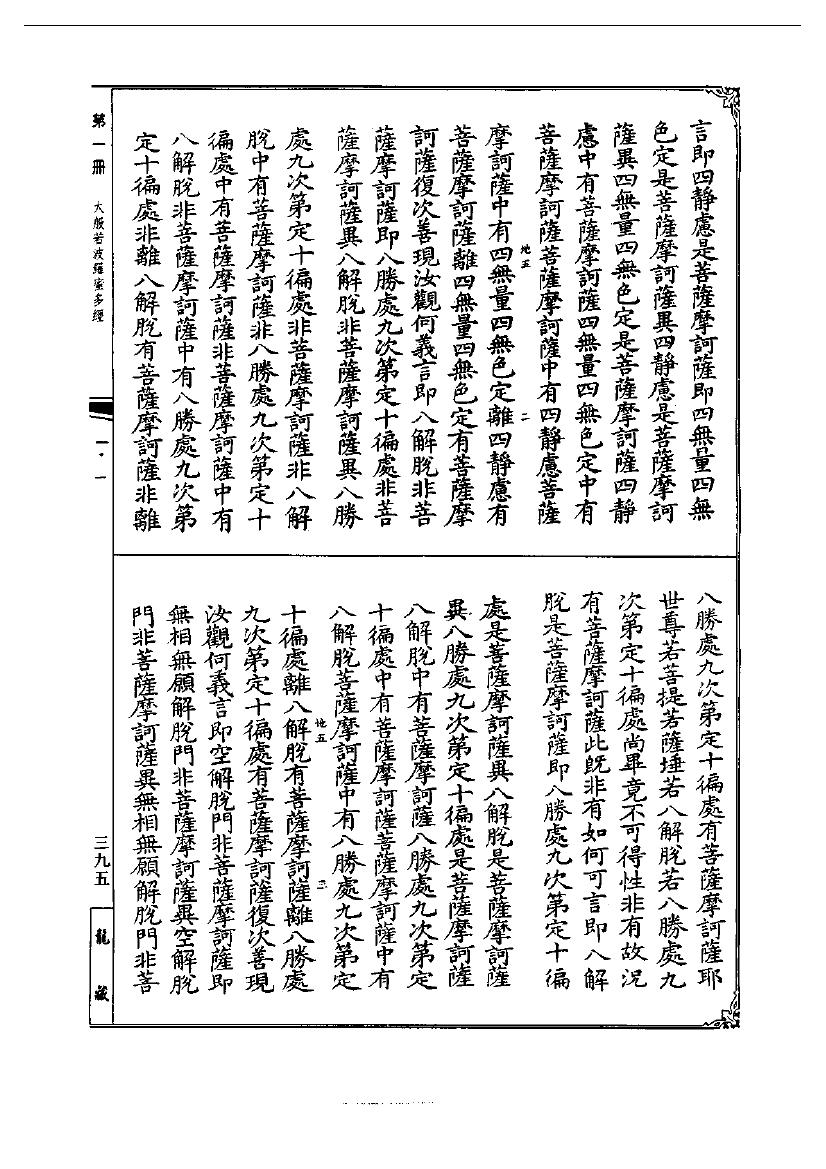 言即四靜慮是菩薩摩訶薩即四無量四無
色定是菩薩摩訶薩異四靜慮是菩薩摩訶
薩異四無量四無色定是菩薩摩訶薩四靜
慮中有菩薩摩訶薩四無量四無色定中有
菩薩摩訶薩菩薩摩訶薩中有四靜慮菩薩
地五 二
摩訶薩中有四無量四無色定離四靜慮有
菩薩摩訶薩離四無量四無色定有菩薩摩
訶薩復次善現汝觀何義言即八解脫非菩
薩摩訶薩即八勝處九次第定十徧處非菩
薩摩訶薩異八解脫非菩薩摩訶薩異八勝
處九次第定十徧處非菩薩摩訶薩非八解
脫中有菩薩摩訶薩非八勝處九次第定十
徧處中有菩薩摩訶薩非菩薩摩訶薩中有
八解脫非菩薩摩訶薩中有八勝處九次第
定十徧處非離八解脫有菩薩摩訶薩非離
八勝處九次第定十徧處有菩薩摩訶薩耶
世尊若菩提若薩埵若八解脫若八勝處九
次第定十徧處尚畢竟不可得性非有故況
有菩薩摩訶薩此既非有如何可言即八解
脫是菩薩摩訶薩即八勝處九次第定十徧
處是菩薩摩訶薩異八解脫是菩薩摩訶薩
異八勝處九次第定十徧處是菩薩摩訶薩
八解脫中有菩薩摩訶薩八勝處九次第定
十徧處中有菩薩摩訶薩菩薩摩訶薩中有
八解脫菩薩摩訶薩中有八勝處九次第定
地五 三
十徧處離八解脫有菩薩摩訶薩離八勝處
九次第定十徧處有菩薩摩訶薩復次善現
汝觀何義言即空解脫門非菩薩摩訶薩即
無相無願解脫門非菩薩摩訶薩異空解脫
門非菩薩摩訶薩異無相無願解脫門非菩
第一冊 大般若波羅蜜多經
一·一
三九五
龍藏